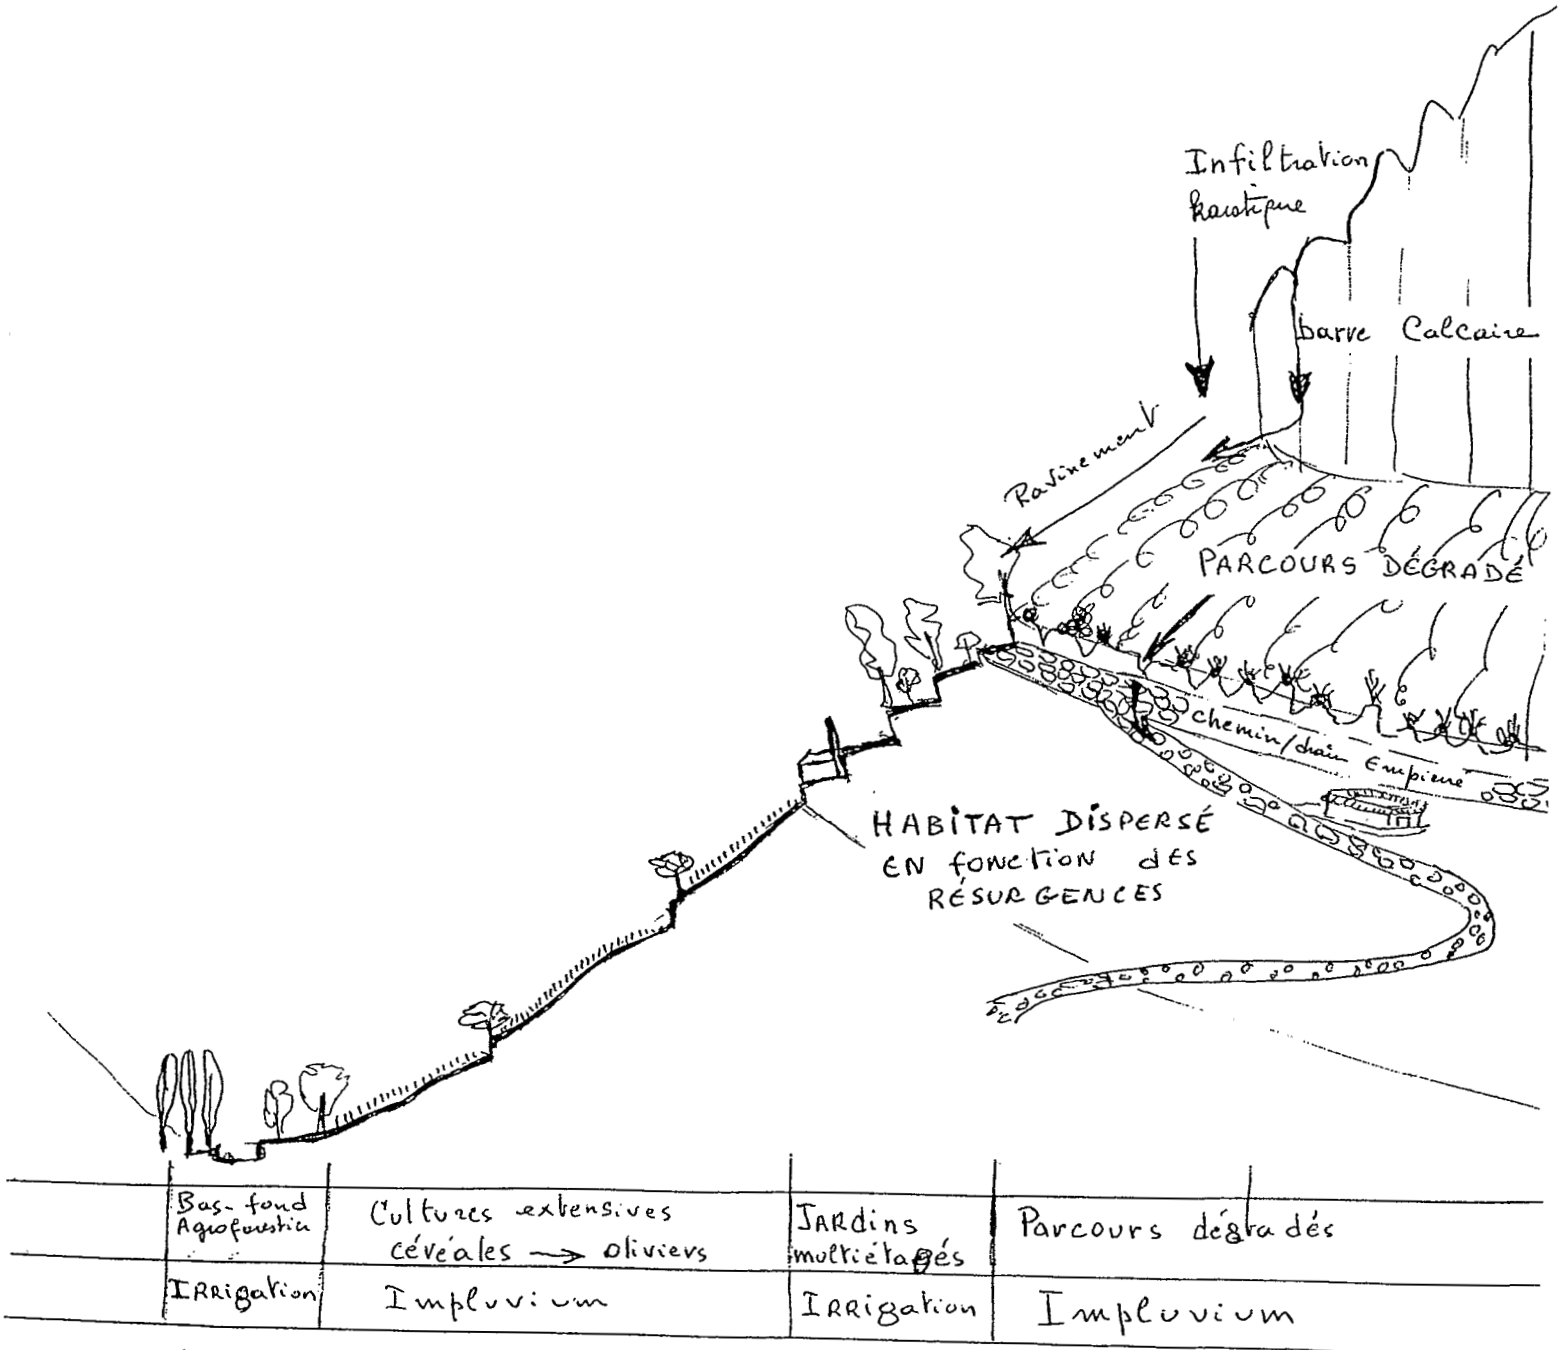 Infiltration
karstique
barre Calcaire
Ravinement
PARCOURS DÉGRADÉ
chemin/drain Empierré
HABITAT DISPERSÉ
EN fonction dES
RÉSURGENCES
Bas-fond
Agroforestier
Cultures extensives
céréales → oliviers
JARdins
multiétagés
Parcours dégradés
IRRigation
Impluvium
IRRigation
Impluvium